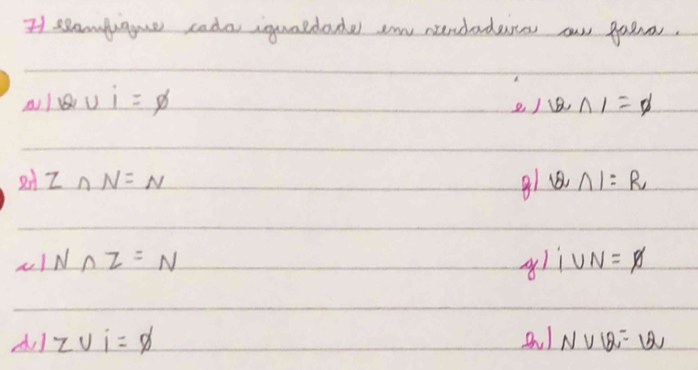 7) Classifique cada igualdade em verdadeira ou falsa.
a) Q ∪ i = ∅
e) Q ∩ I = ∅
b) Z ∩ N = N
f) Q ∩ I = R
c) N ∩ Z = N
g) i ∪ N = ∅
d) Z ∪ i = ∅
h) N ∪ Q = Q